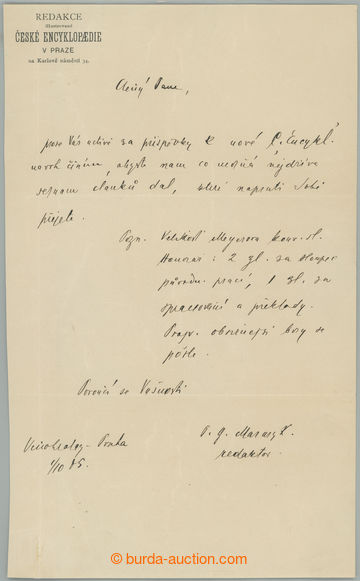 REDAKCE
illustrované
ČESKÉ ENCYKLOPÆDIE
V PRAZE
na Karlově náměstí 34.
Ctěný Pane,
pane Vás uctivě za příspěvky k nové „Č. Encykl."
návrh činím, abyste nám co možná nejdříve
seznam článků dal, které napsati Sobě
přejete.
Pozn. Velikost Meyerova konv. sl.
Honorář: 2 zl. za sloupec
původn. prací, 1 zl. za
zpracování a překlady.
obšírnější by se
pošle.
Poroučí se Vašnosti
Praha
1/10 85.
T. G. Masaryk.
redaktor.
© burda-auction.com